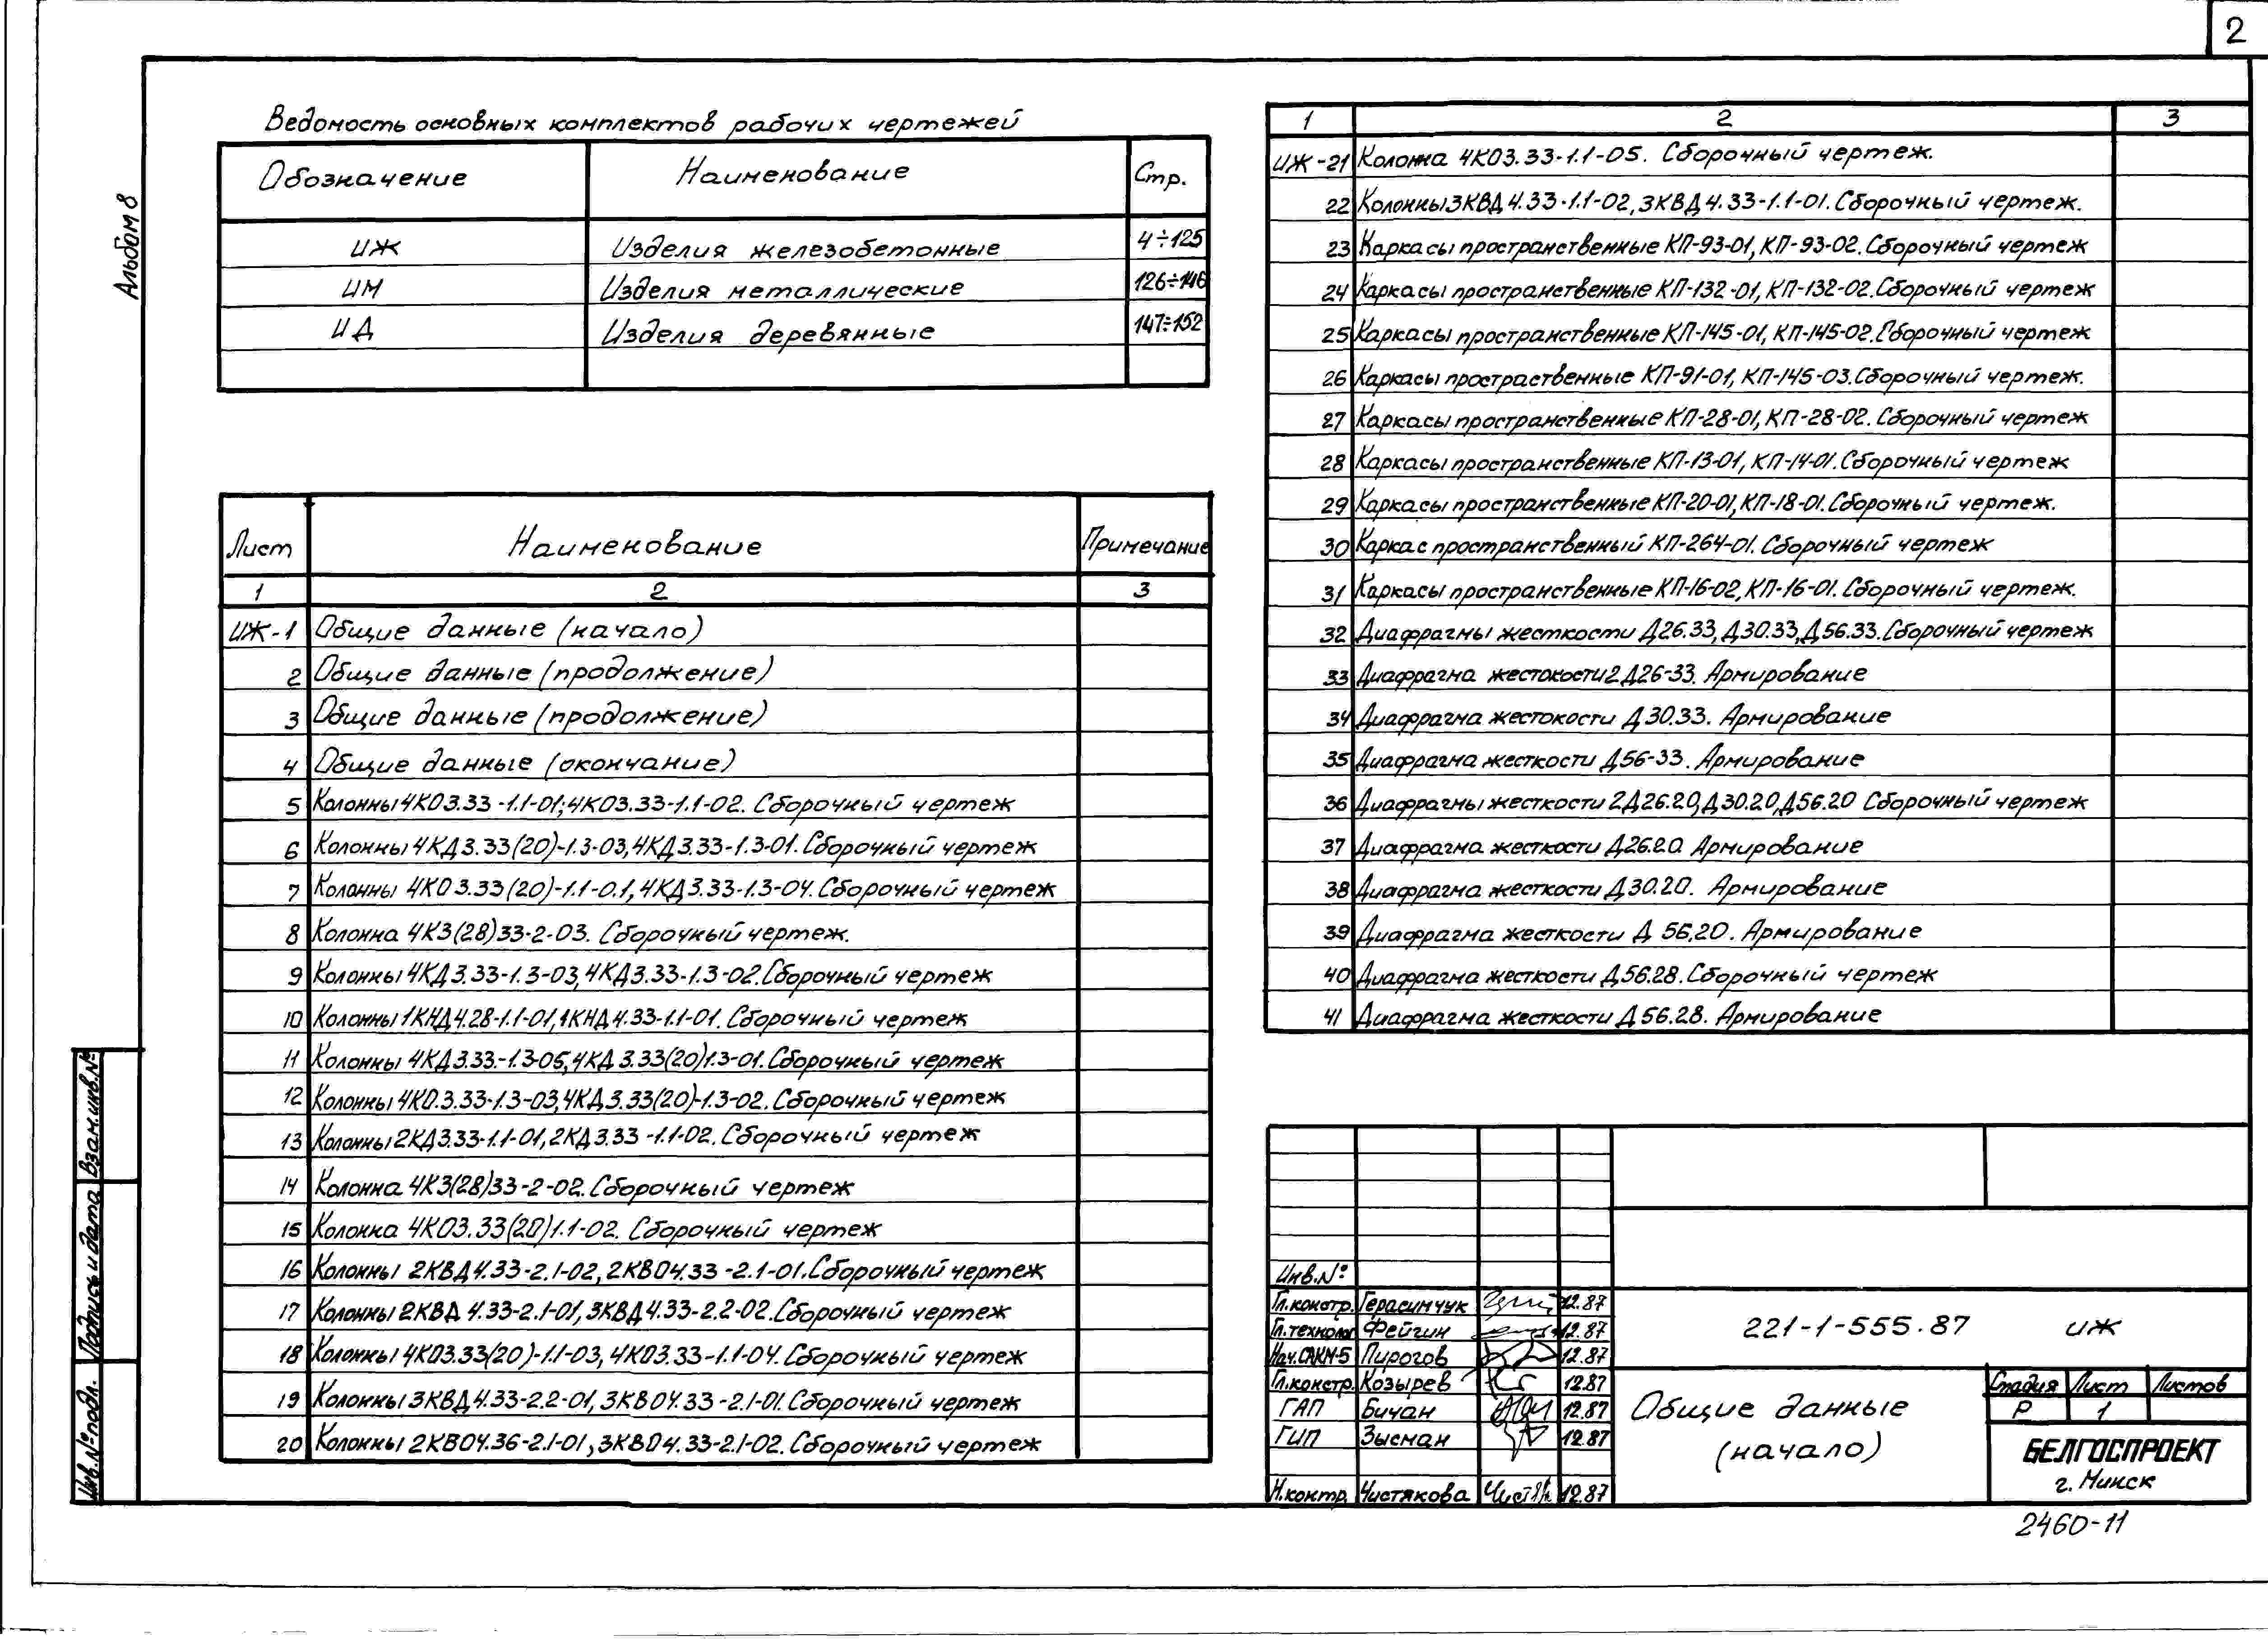 2
Альбом 8
Ведомость основных комплектов рабочих чертежей
Обозначение Наименование Стр.
ИЖ Изделия железобетонные 4÷125
ИМ Изделия металлические 126÷146
ИД Изделия деревянные 147÷152
Лист Наименование Примечание
1 2 3
ИЖ-1 Общие данные (начало)
2 Общие данные (продолжение)
3 Общие данные (продолжение)
4 Общие данные (окончание)
5 Колонны 4КО3.33-1.1-01; 4КО3.33-1.1-02. Сборочный чертеж
6 Колонны 4КД3.33(20)-1.3-03, 4КД3.33-1.3-01. Сборочный чертеж
7 Колонны 4КО3.33(20)-1.1-0.1, 4КД3.33-1.3-04. Сборочный чертеж
8 Колонна 4К3(28)33-2-03. Сборочный чертеж.
9 Колонны 4КД3.33-1.3-03, 4КД3.33-1.3-02. Сборочный чертеж
10 Колонны 1КНД4.28-1.1-01, 1КНД4.33-1.1-01. Сборочный чертеж
11 Колонны 4КД3.33.-1.3-05, 4КД3.33(20)1.3-01. Сборочный чертеж
12 Колонны 4КО.3.33-1.3-03, 4КД.3.33(20)-1.3-02. Сборочный чертеж
13 Колонны 2КД3.33-1.1-01, 2КД3.33-1.1-02. Сборочный чертеж
14 Колонна 4К3(28)33-2-02. Сборочный чертеж
15 Колонна 4КО3.33(20)1.1-02. Сборочный чертеж
16 Колонны 2КВД4.33-2.1-02, 2КВО4.33-2.1-01. Сборочный чертеж
17 Колонны 2КВД4.33-2.1-01, 3КВД4.33-2.2-02. Сборочный чертеж
18 Колонны 4КО3.33(20)-1.1-03, 4КО3.33-1.1-04. Сборочный чертеж
19 Колонны 3КВД4.33-2.2-01, 3КВО4.33-2.1-01. Сборочный чертеж
20 Колонны 2КВО4.36-2.1-01, 3КВО4.33-2.1-02. Сборочный чертеж
1 2 3
ИЖ-21 Колонна 4КО3.33-1.1-05. Сборочный чертеж.
22 Колонны 3КВД4.33-1.1-02, 3КВД4.33-1.1-01. Сборочный чертеж.
23 Каркасы пространственные КП-93-01, КП-93-02. Сборочный чертеж
24 Каркасы пространственные КП-132-01, КП-132-02. Сборочный чертеж
25 Каркасы пространственные КП-145-01, КП-145-02. Сборочный чертеж
26 Каркасы простраственные КП-91-01, КП-145-03. Сборочный чертеж.
27 Каркасы пространственные КП-28-01, КП-28-02. Сборочный чертеж
28 Каркасы пространственные КП-13-01, КП-14-01. Сборочный чертеж
29 Каркасы пространственные КП-20-01, КП-18-01. Сборочный чертеж.
30 Каркас пространственный КП-264-01. Сборочный чертеж
31 Каркасы пространственные КП-16-02, КП-16-01. Сборочный чертеж.
32 Диафрагмы жесткости Д26.33, Д30.33, Д56.33. Сборочный чертеж
33 Диафрагма жестокости 2Д26-33. Армирование
34 Диафрагма жестокости Д30.33. Армирование
35 Диафрагма жесткости Д56-33. Армирование
36 Диафрагмы жесткости 2Д26.20, Д30.20, Д56.20 Сборочный чертеж
37 Диафрагма жесткости Д26.20 Армирование
38 Диафрагма жесткости Д30.20. Армирование
39 Диафрагма жесткости Д 56.20. Армирование
40 Диафрагма жесткости Д56.28. Сборочный чертеж
41 Диафрагма жесткости Д56.28. Армирование
Взам.инв.№
Подпись и дата
Инв.№подл.
Инв.№
Гл.констр. Герасимчук 12.87
Гл.технолог Фейгин 12.87
Нач.САКМ-5 Пирогов 12.87
Гл.констр. Козырев 12.87
ГАП Бичан 12.87
ГИП Зысман 12.87
Н.контр. Чистякова 12.87
221-1-555.87 ИЖ
Общие данные
(начало)
Стадия Лист Листов
Р 1
БЕЛГОСПРОЕКТ
г. Минск
2460-11